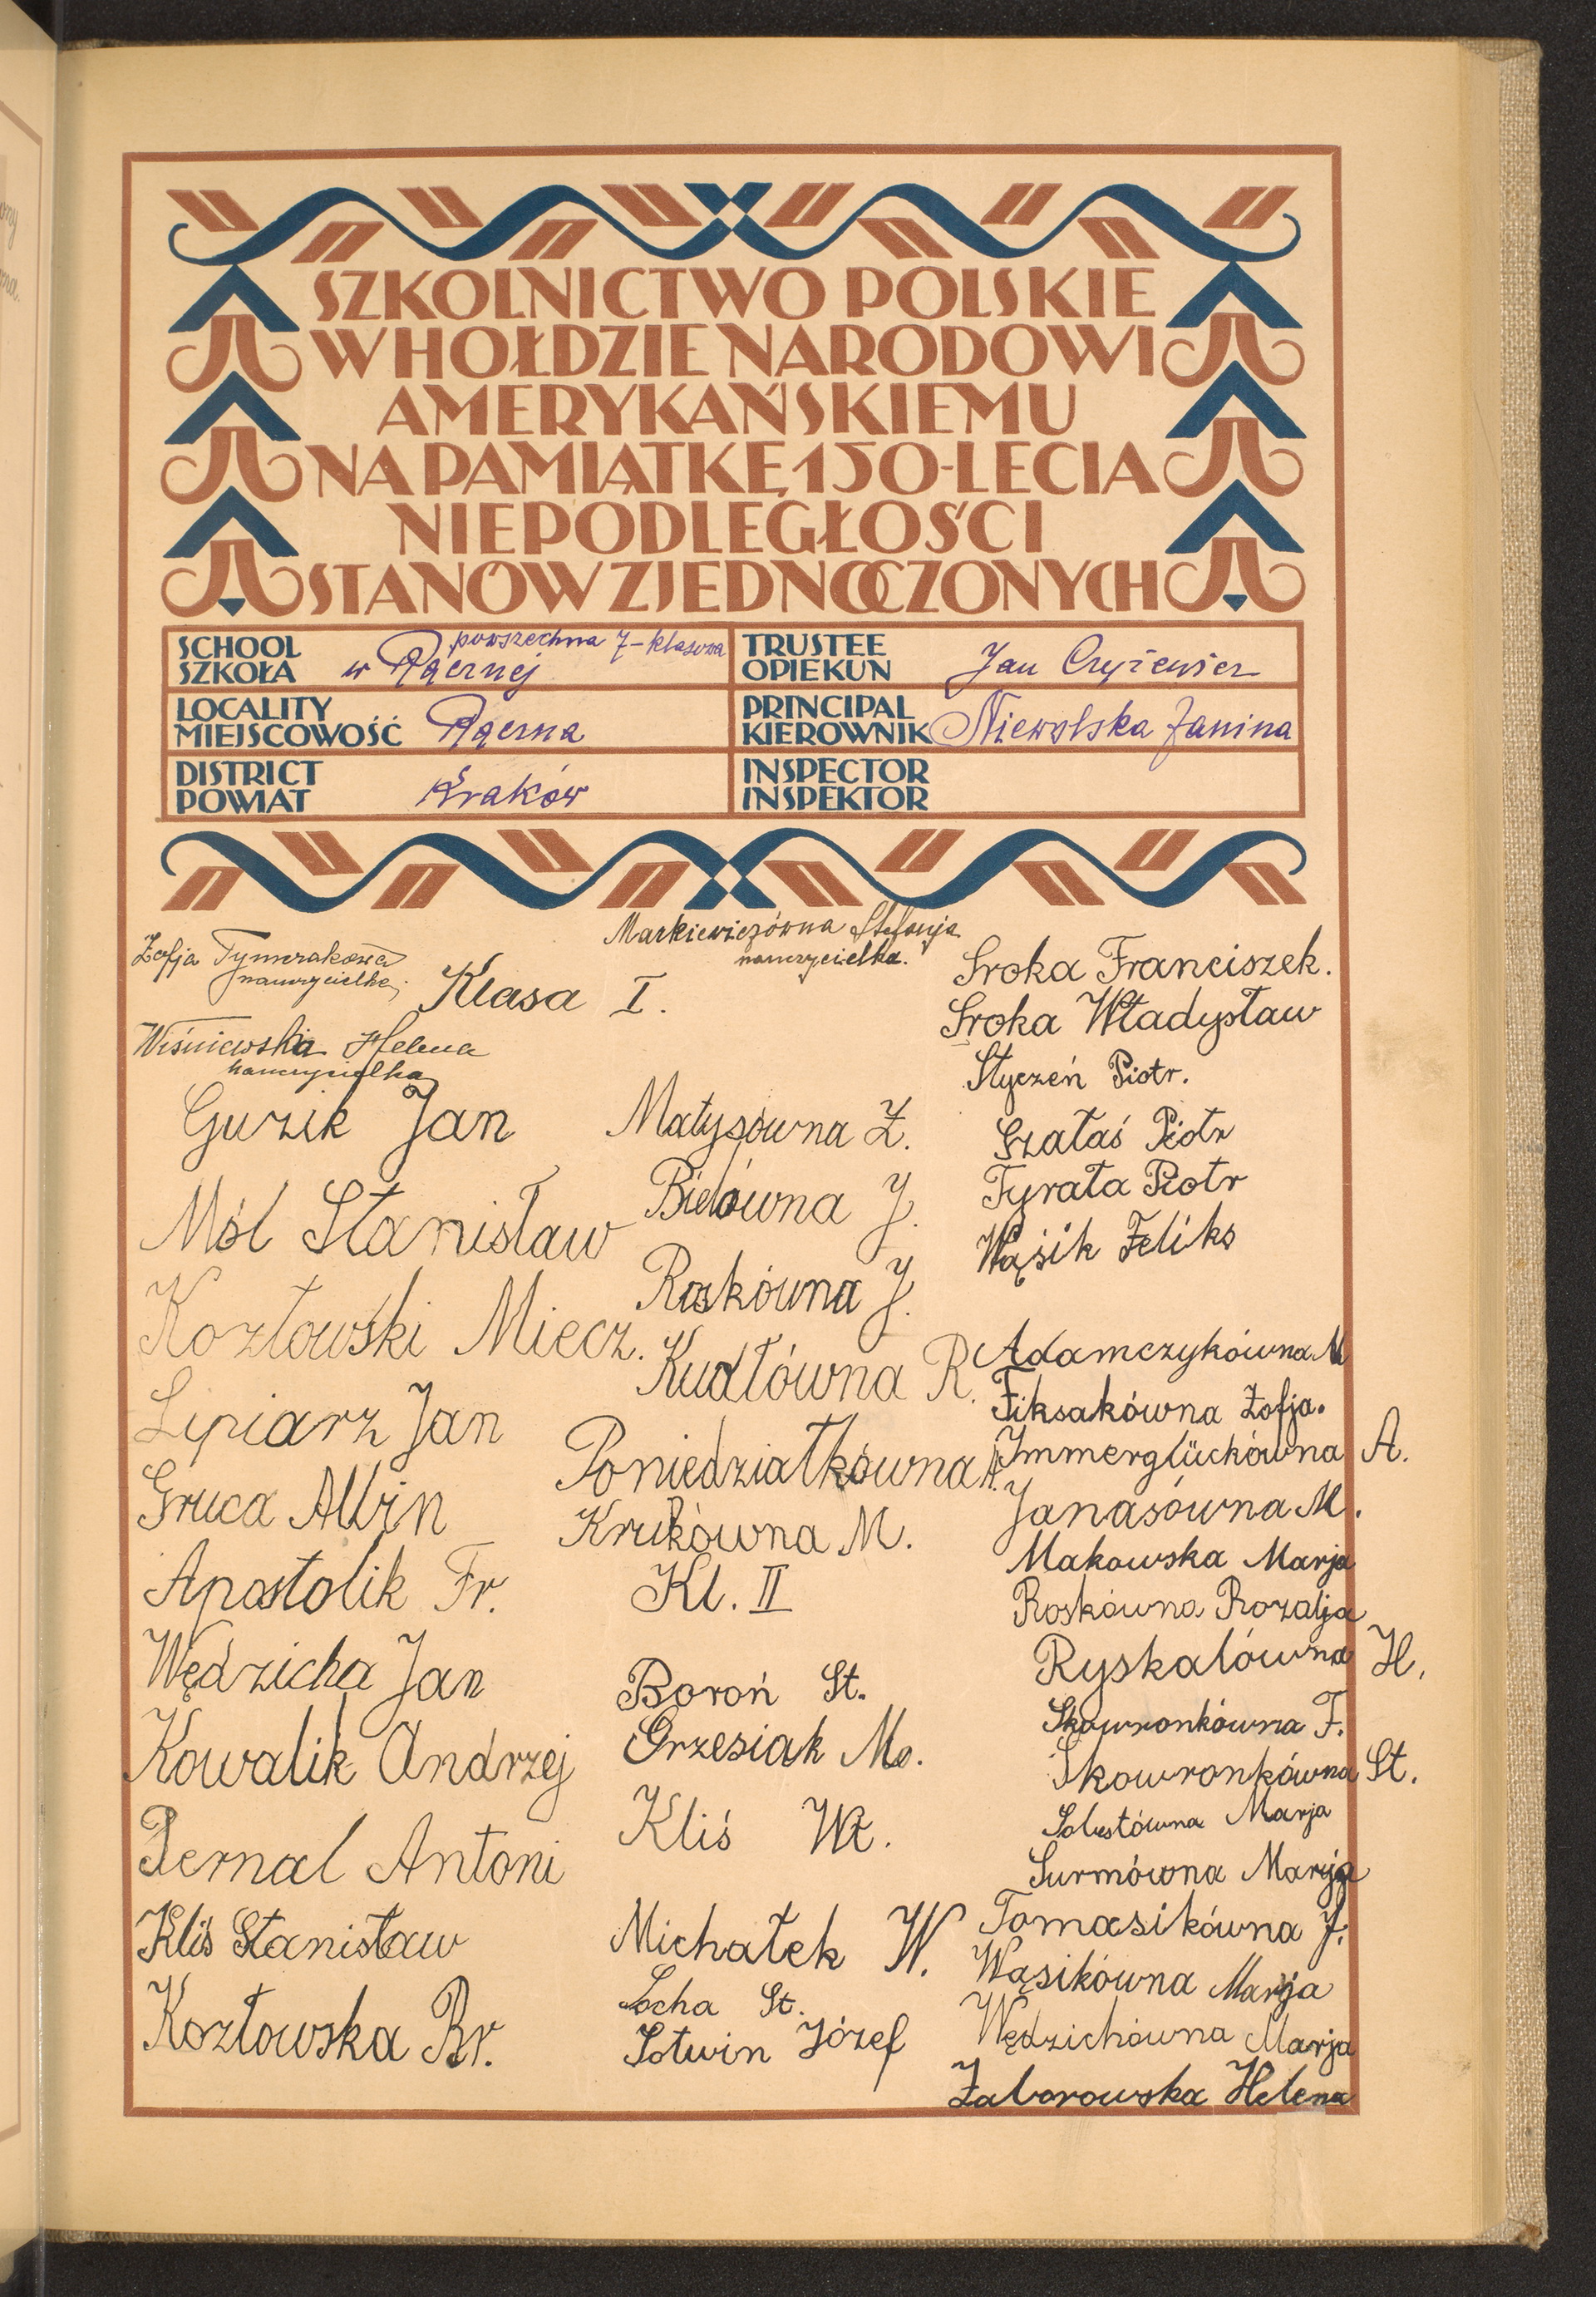 SZKOLNICTWO POLSKIE
W HOŁDZIE NARODOWI
AMERYKAŃSKIEMU
NA PAMIĄTKĘ 150-LECIA
NIEPODLEGŁOŚCI
STANÓW ZJEDNOCZONYCH
SCHOOL
SZKOŁA
powszechna 7-klasowa
w Rącznej
TRUSTEE
OPIEKUN
Jan Czyżewicz
LOCALITY
MIEJSCOWOŚĆ
Rączna
PRINCIPAL
KIEROWNIK
Niewolska Janina
DISTRICT
POWIAT
Kraków
INSPECTOR
INSPEKTOR
Zofja Tymrakowa
nauczycielka
Markiewiczówna Stefanja
nauczycielka.
Klasa I.
Wiśniewska Helena
nauczycielka
Guzik Jan
Mól Stanisław
Kozłowski Miecz.
Lipiarz Jan
Gruca Albin
Apostolik Fr.
Wędzicha Jan
Kowalik Andrzej
Bernal Antoni
Kliś Stanisław
Kozłowska Br.
Matysówna Z.
Bielówna J.
Roskówna J.
Kudłówna R.
Poniedziałkówna A.
Krukówna M.
Kl. II
Boroń St.
Grzesiak Mo.
Kliś Wł.
Michałek W.
Socha St.
Sotwin Józef
Sroka Franciszek.
Sroka Władysław
Styczeń Piotr.
Szałaś Piotr
Tyrała Piotr
Wąsik Feliks
Adamczykówna M
Fiksakówna Zofja.
Immerglückówna A.
Janasówna M.
Makowska Marja
Roskówna Rozalja
Ryskalówna H.
Skowronkówna F.
Skowronkówna St.
Sobestówna Marja
Surmówna Marja
Tomasikówna J.
Wąsikówna Marja
Wędzichówna Marja
Zaborowska Helena